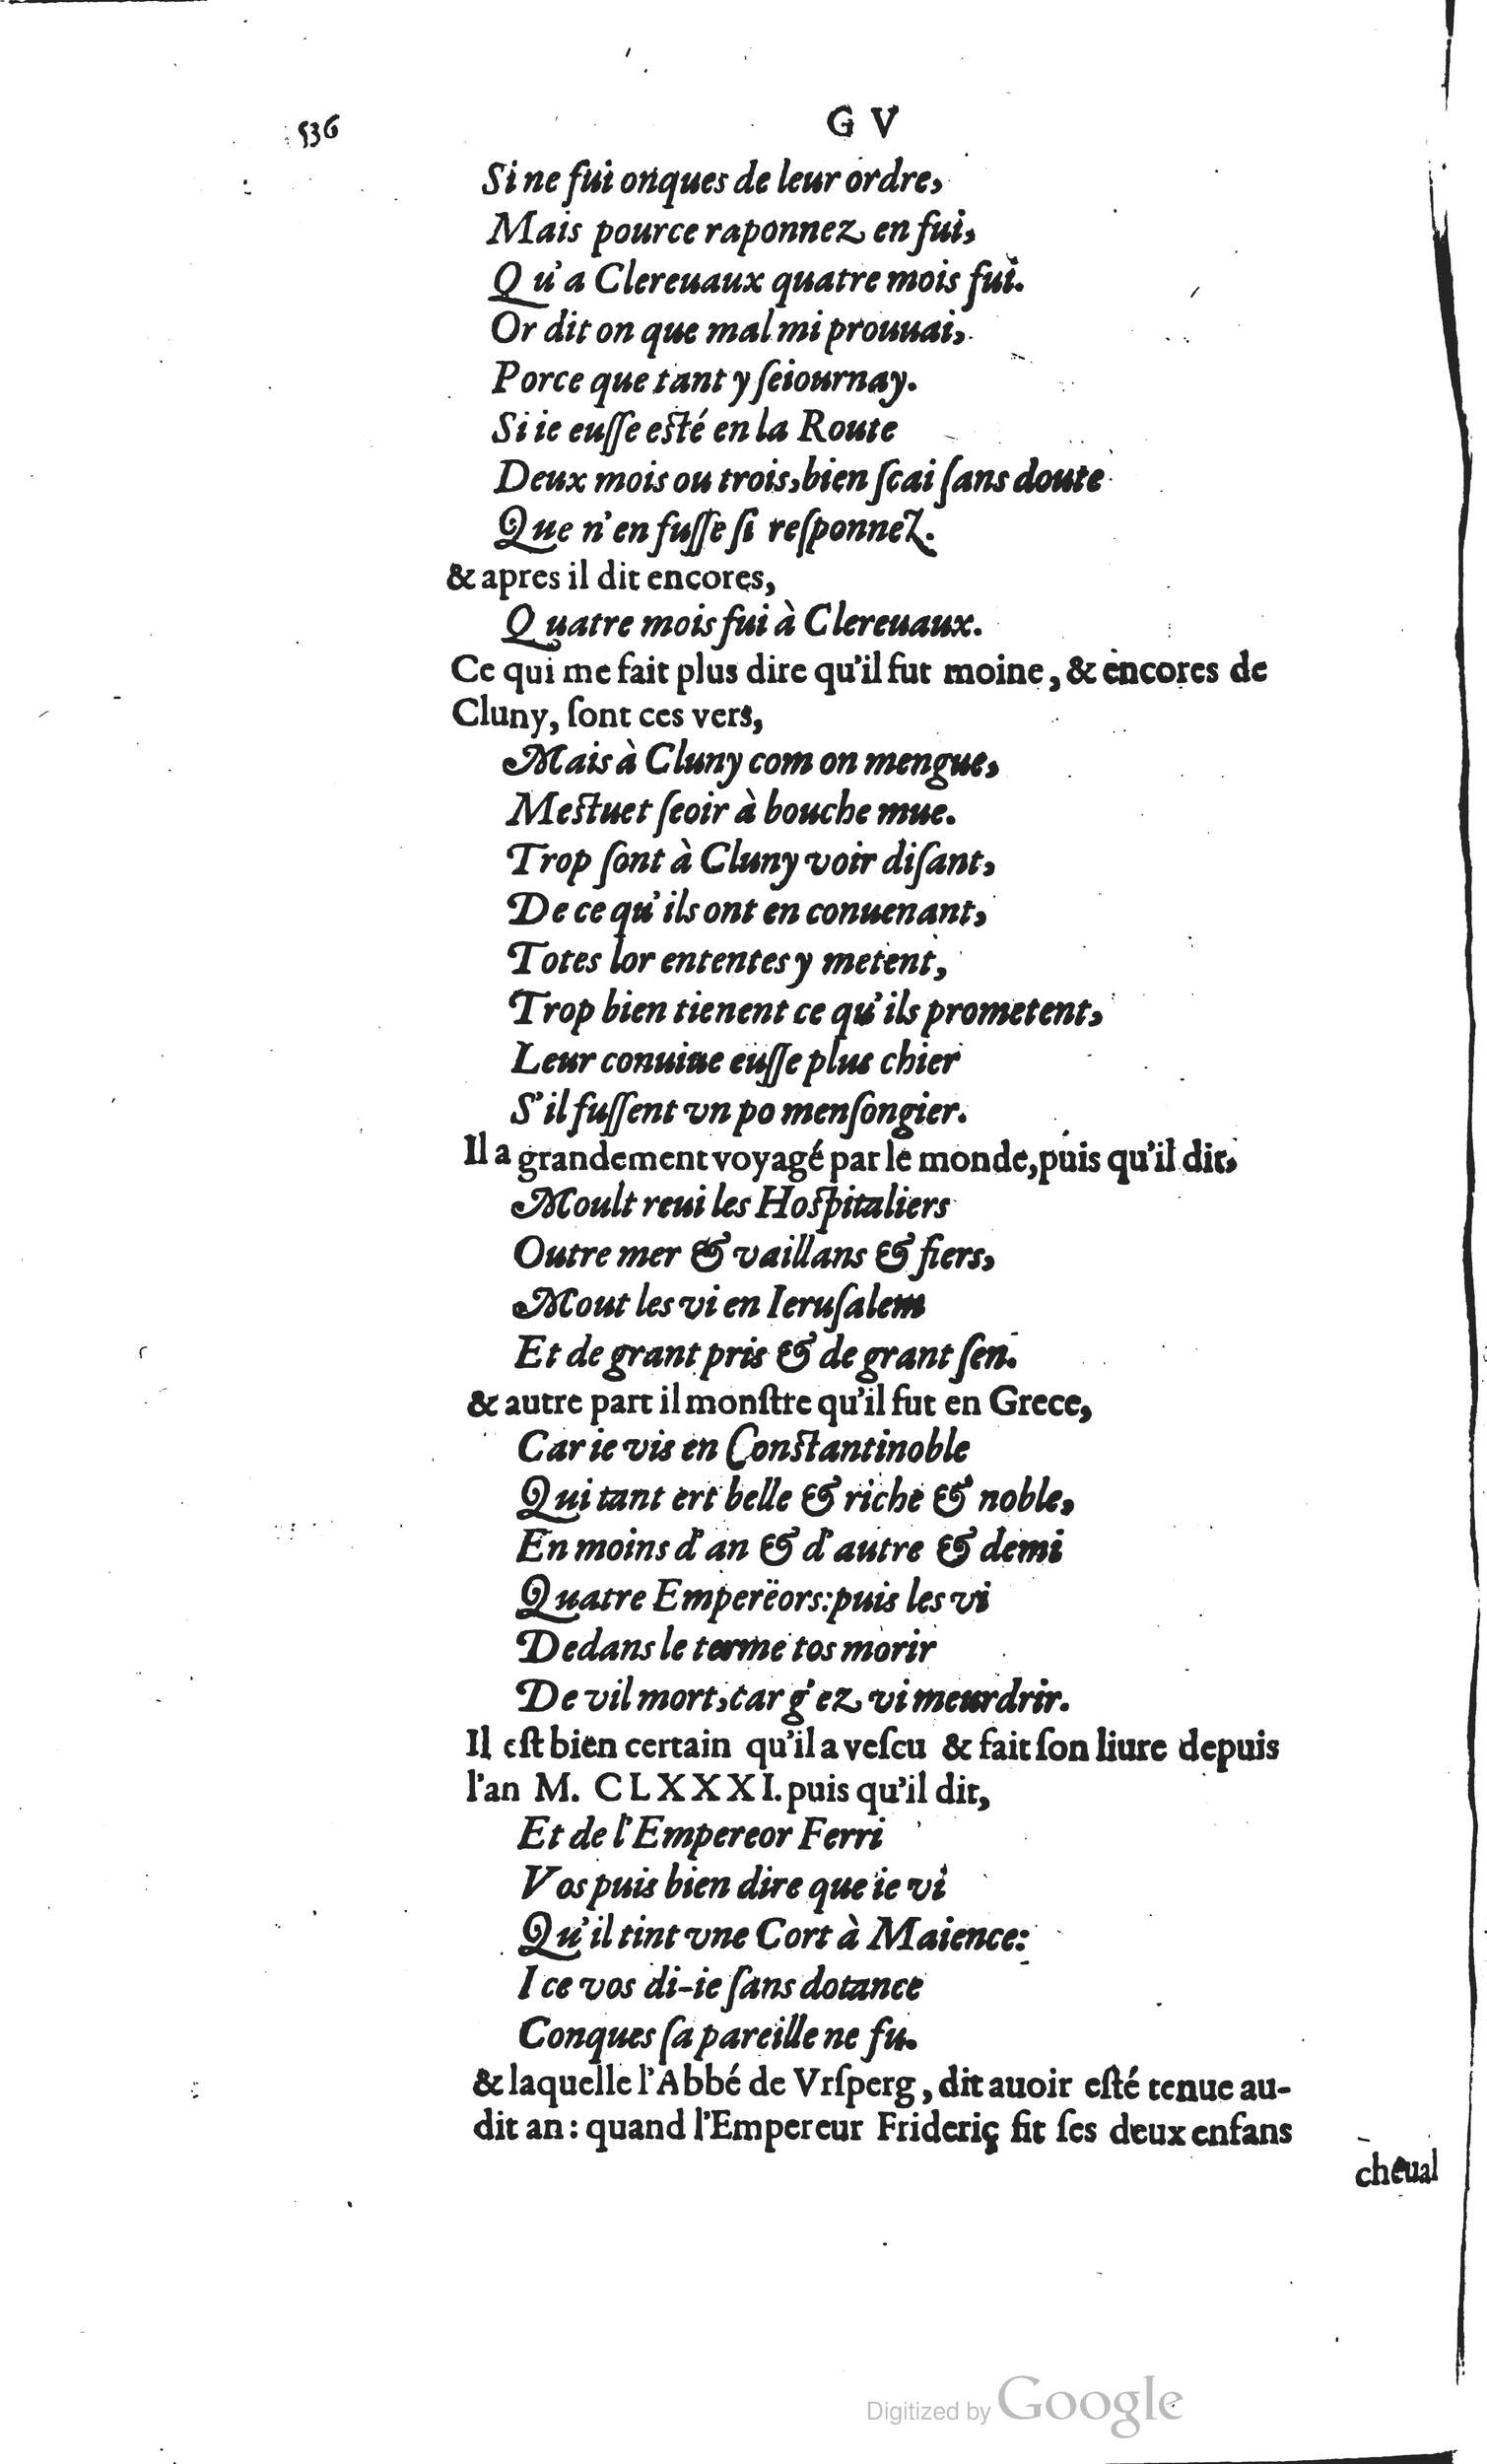 536
G V
Si ne fui onques de leur ordre,
Mais pource raponnez en fui,
Qu'a Clereuaux quatre mois fui.
Or dit on que mal mi prouuai,
Porce que tant y ſeiournay.
Si ie euſſe eſté en la Route
Deux mois ou trois, bien ſcai ſans doute
Que n'en fuſſe ſi reſponnez.
& apres il dit encores,
Quatre mois fui à Clereuaux.
Ce qui me fait plus dire qu'il fut moine, & encores de
Cluny, ſont ces vers,
Mais à Cluny com on mengue,
Meſtuet ſeoir à bouche mue.
Trop ſont à Cluny voir diſant,
De ce qu'ils ont en conuenant,
Totes lor ententes y metent,
Trop bien tienent ce qu'ils prometent,
Leur conuine euſſe plus chier
S'il fuſſent vn po menſongier.
Il a grandement voyagé par le monde, puis qu'il dit,
Moult reui les Hoſpitaliers
Outre mer & vaillans & fiers,
Mout les vi en Ieruſalem
Et de grant pris & de grant ſen.
& autre part il monſtre qu'il fut en Grece,
Car ie vis en Conſtantinoble
Qui tant ert belle & riche & noble,
En moins d'an & d'autre & demi
Quatre Emperëors: puis les vi
Dedans le terme tos morir
De vil mort, car g'ez vi meurdrir.
Il eſt bien certain qu'il a veſcu & fait ſon liure depuis
l'an M. CLXXXI. puis qu'il dit,
Et de l'Empereor Ferri
Vos puis bien dire que ie vi
Qu'il tint vne Cort à Maience:
Ice vos di-ie ſans dotance
Conques ſa pareille ne fu.
& laquelle l'Abbé de Vrſperg, dit auoir eſté tenue au-
dit an: quand l'Empereur Frideriç fit ſes deux enfans
cheual
Digitized by Google